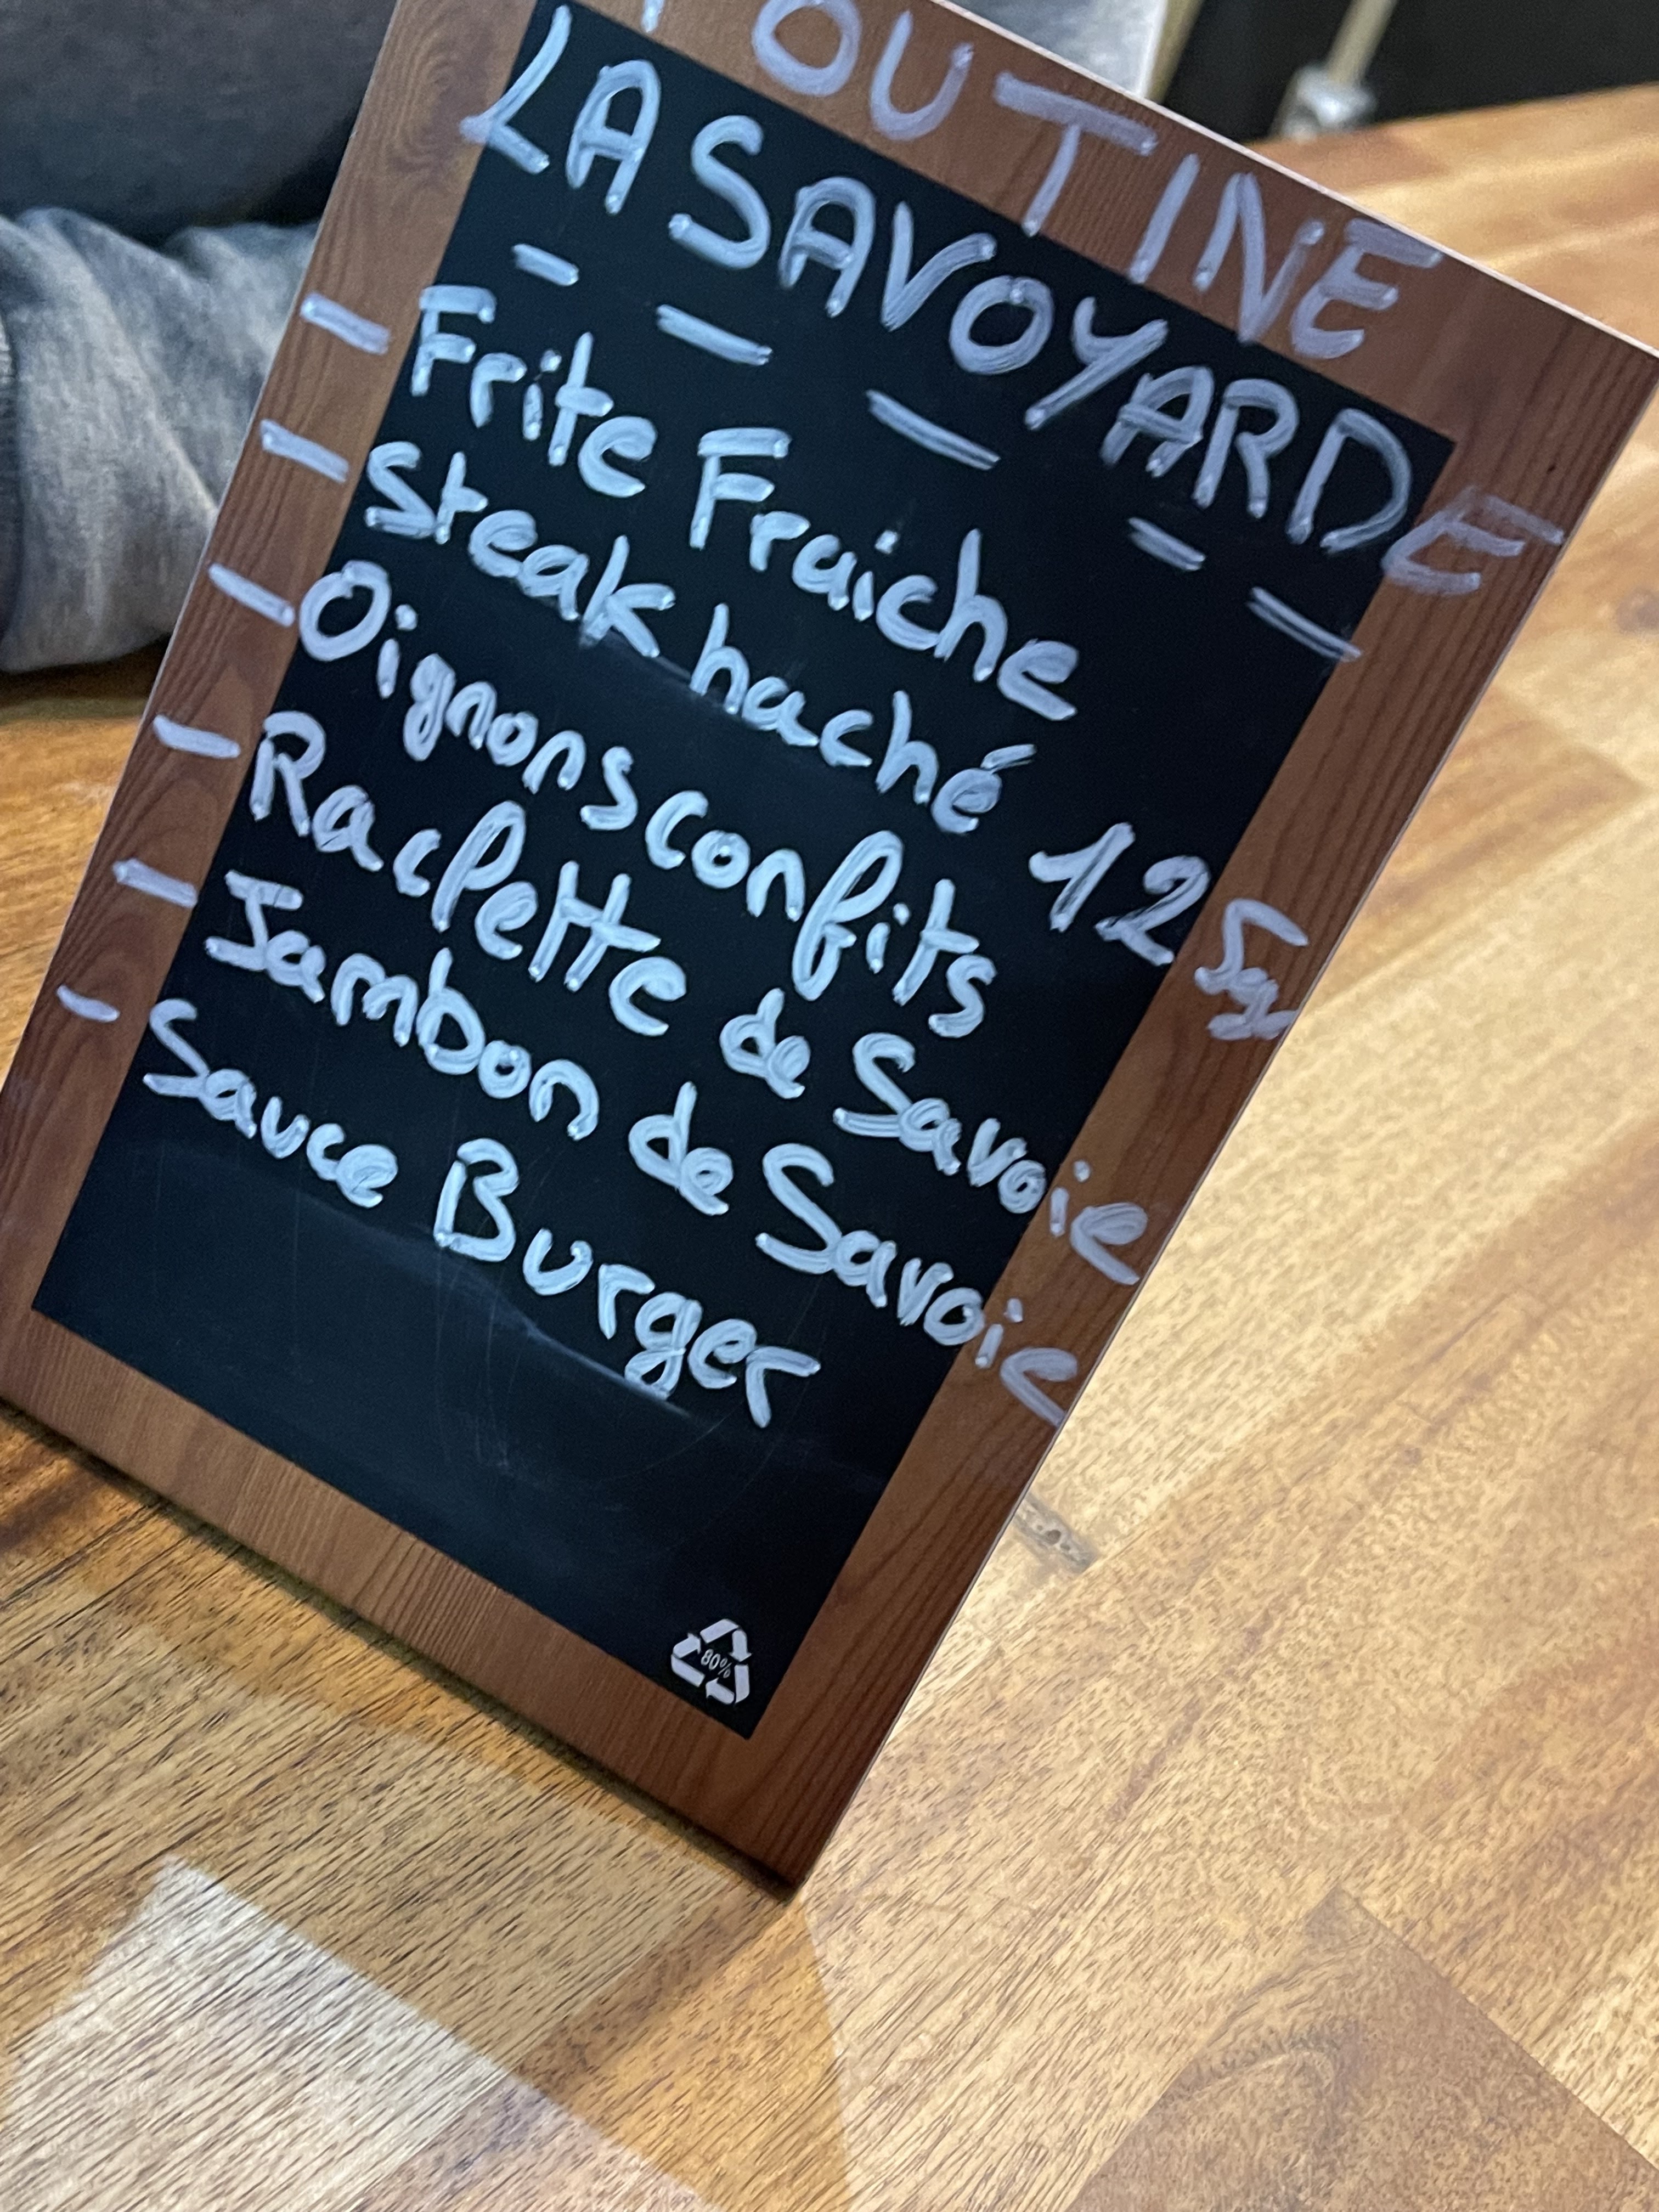 POUTINE
LA SAVOYARDE
- Frite Fraiche
- Steak haché 125g
- Oignons confits
- Raclette de Savoie
- Jambon de Savoie
- Sauce Burger
80%